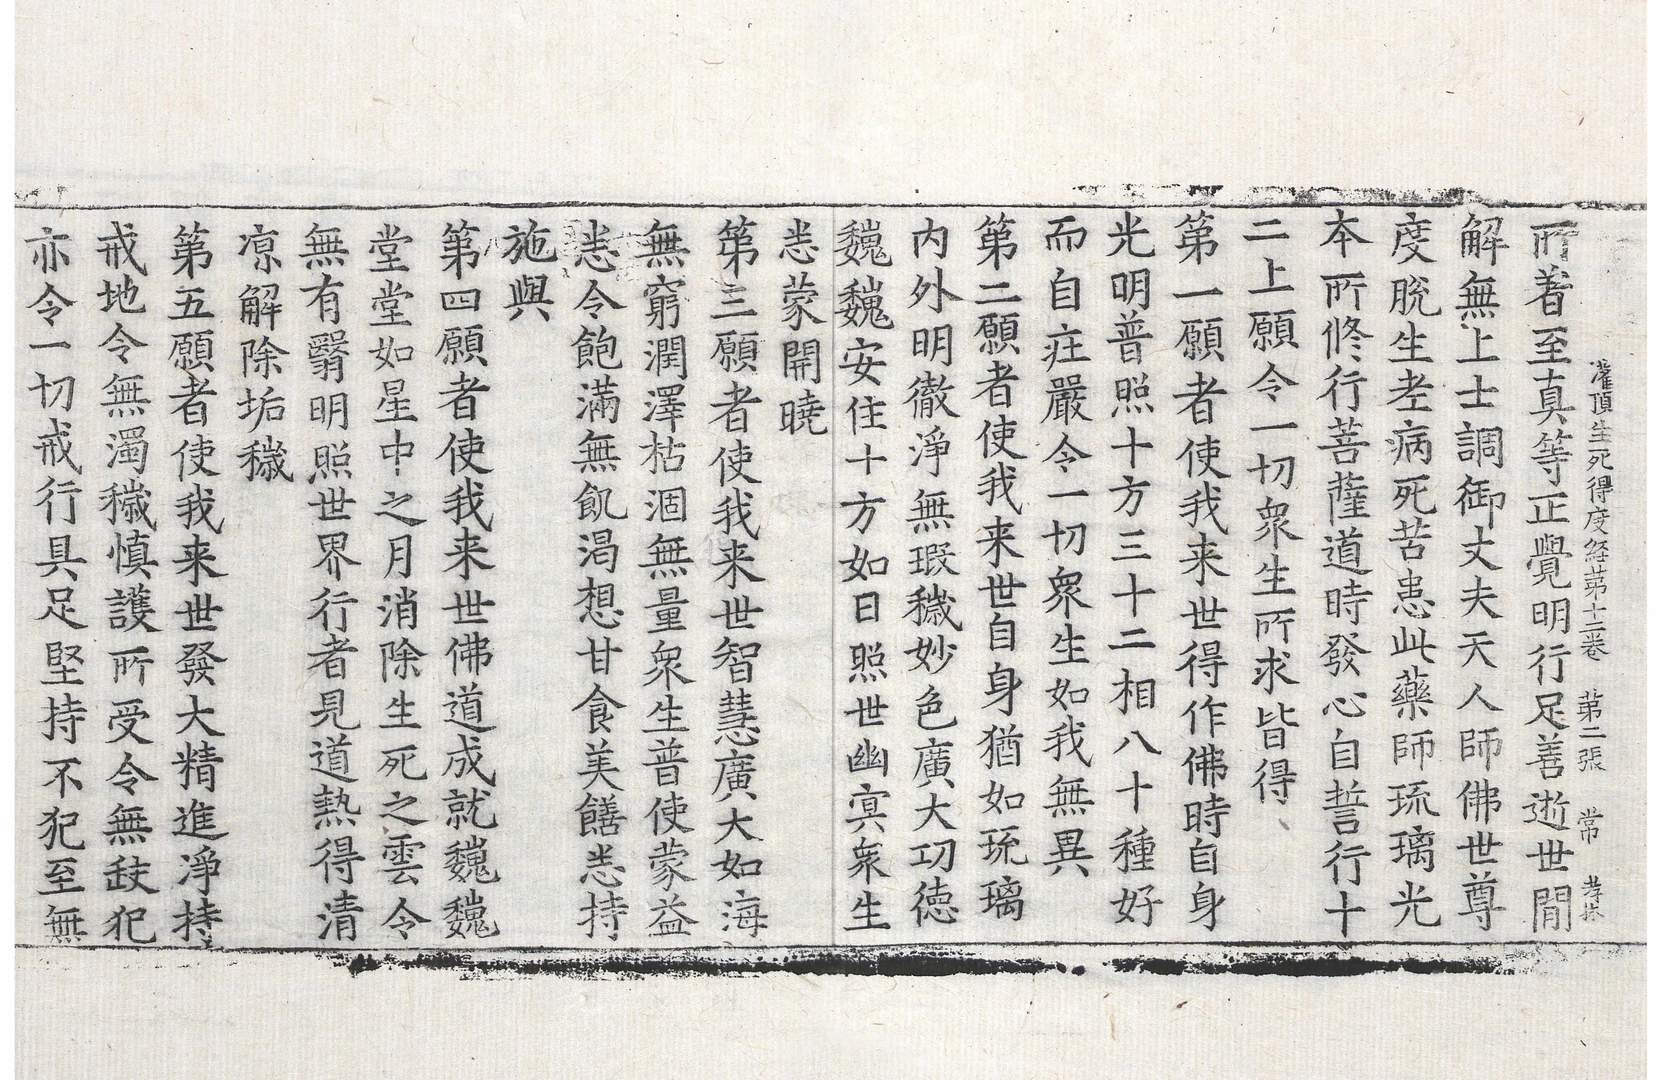 灌頂生死得度経苐十二卷 第二張 常 孝林
所著至真等正覺明行足善逝世間
解無上士調御丈夫天人師佛世尊
度脫生老病死苦患此藥師琉璃光
本所修行菩薩道時發心自誓行十
二上願令一切衆生所求皆得
第一願者使我来世得作佛時自身
光明普照十方三十二相八十種好
而自庄嚴令一切衆生如我無異
第二願者使我来世自身猶如琉璃
内外明徹淨無瑕穢妙色廣大功德
巍巍安住十方如日照世幽冥衆生
悉蒙開曉
第三願者使我来世智慧廣大如海
無窮潤澤枯涸無量衆生普使蒙益
悉令飽滿無飢渴想甘食美饍悉持
施與
第四願者使我来世佛道成就巍巍
堂堂如星中之月消除生死之雲令
無有翳明照世界行者見道熱得清
凉解除垢穢
第五願者使我来世發大精進淨持
戒地令無濁穢慎護所受令無缺犯
亦令一切戒行具足堅持不犯至無